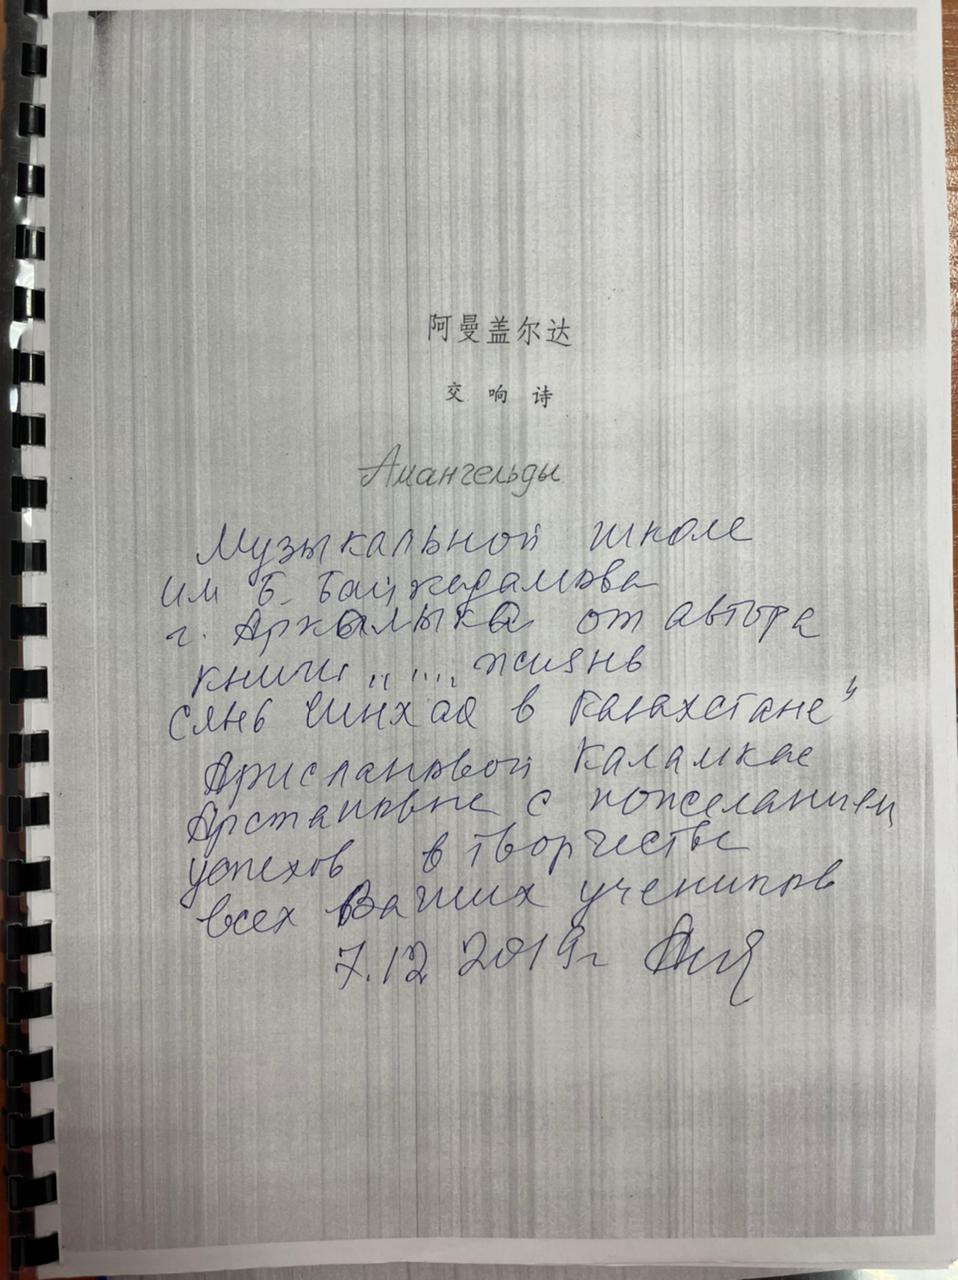 阿曼盖尔达
交响诗
Амангельды
Музыкальной школе
им Б. Байкадамова
г. Аркалыка от автора
книги „ ... жизнь
Сянь Синхая в Казахстане"
Арислановой Каламкас
Арстановне с пожеланием
успехов в творчестве
всех Ваших учеников
7.12 2019г